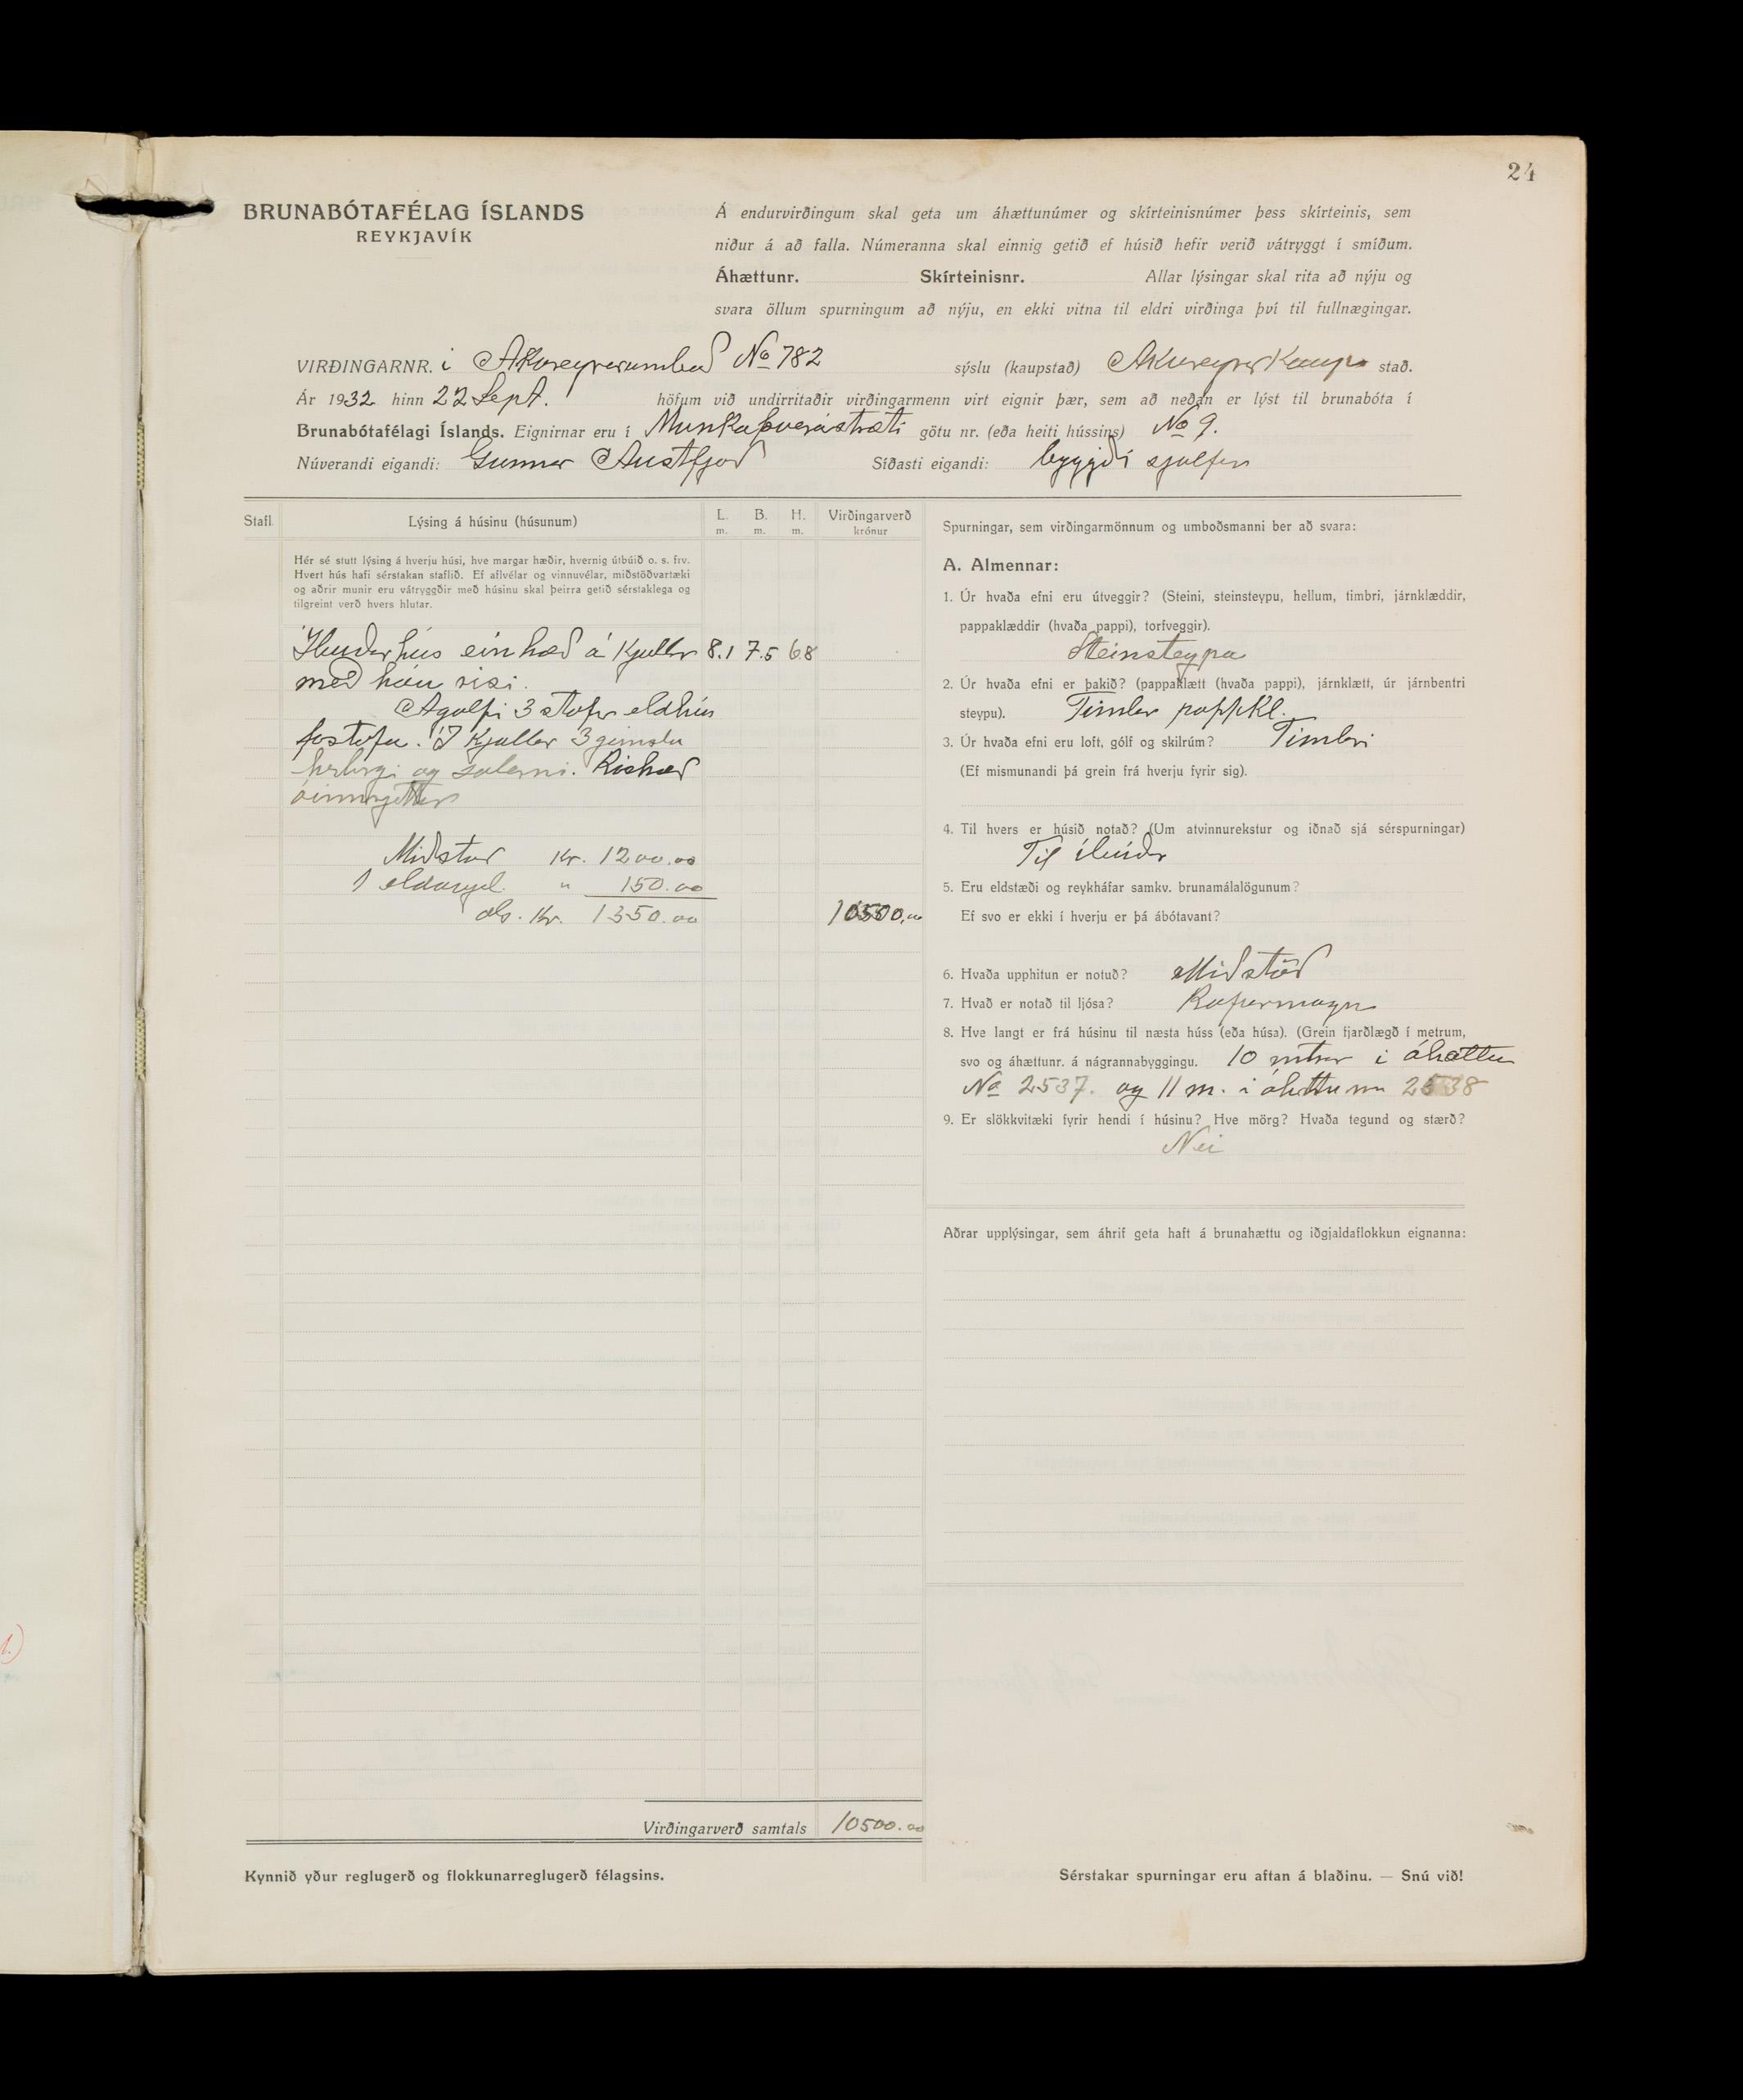 24
BRUNABÓTAFÉLAG ÍSLANDS
REYKJAVÍK
Á endurvirðingum skal geta um áhættunúmer og skírteinisnúmer þess skírteinis, sem
niður á að falla. Númeranna skal einnig getið ef húsið hefir verið vátryggt í smíðum.
Áhættunr. Skírteinisnr. Allar lýsingar skal rita að nýju og
svara öllum spurningum að nýju, en ekki vitna til eldri virðinga því til fullnægingar.
VIRÐINGARNR. i Akureyrarumbod No 782 sýslu (kaupstað) Akureyrar Kaup stað.
Ár 1932 hinn 22 Sept. höfum við undirritaðir virðingarmenn virt eignir þær, sem að neðan er lýst til brunabóta í
Brunabótafélagi Íslands. Eignirnar eru í Munkaþverástræti götu nr. (eða heiti hússins) No 9.
Núverandi eigandi: Gunnar Austfjord Síðasti eigandi: byggði sjalfur
Stafl. Lýsing á húsinu (húsunum) L. m. B. m. H. m. Virðingarverð krónur
Hér sé stutt lýsing á hverju húsi, hve margar hæðir, hvernig útbúið o. s. frv.
Hvert hús hafi sérstakan staflið. Ef aflvélar og vinnuvélar, miðstöðvartæki
og aðrir munir eru vátryggðir með húsinu skal þeirra getið sérstaklega og
tilgreint verð hvers hlutar.
Íbuðarhús einhæd á Kjallar 8.1 7.5 6.8
með háu risi.
Agolfi 3 stofur eldhús
fostofa. Í Kjallar 3 geimslu
herbergi og salerni. Rishæd
óinnrjettur
Miðstod Kr. 1200.00
1 eldavjel. " 150.00
als. Kr. 1350.00 10500.00
Virðingarverð samtals 10500.00
Kynnið yður reglugerð og flokkunarreglugerð félagsins.
Spurningar, sem virðingarmönnum og umboðsmanni ber að svara:
A. Almennar:
1. Úr hvaða efni eru útveggir? (Steini, steinsteypu, hellum, timbri, járnklæddir,
pappaklæddir (hvaða pappi), torfveggir).
Steinsteypa
2. Úr hvaða efni er þakið? (pappaklætt (hvaða pappi), járnklætt, úr járnbentri
steypu). Timbur pappkl.
3. Úr hvaða efni eru loft, gólf og skilrúm? Timbri
(Ef mismunandi þá grein frá hverju fyrir sig).
4. Til hvers er húsið notað? (Um atvinnurekstur og iðnað sjá sérspurningar)
Til íbúðar
5. Eru eldstæði og reykháfar samkv. brunamálalögunum?
Ef svo er ekki í hverju er þá ábótavant?
6. Hvaða upphitun er notuð? Miðstöð
7. Hvað er notað til ljósa? Rafurmagn
8. Hve langt er frá húsinu til næsta húss (eða húsa). (Grein fjarðlægð í metrum,
svo og áhættunr. á nágrannabyggingu. 10 mtrar i áhættu
No 2537. og 11 m. i áhættu nr 2538
9. Er slökkvitæki fyrir hendi í húsinu? Hve mörg? Hvaða tegund og stærð?
Nei
Aðrar upplýsingar, sem áhrif geta haft á brunahættu og iðgjaldaflokkun eignanna:
Sérstakar spurningar eru aftan á blaðinu. — Snú við!